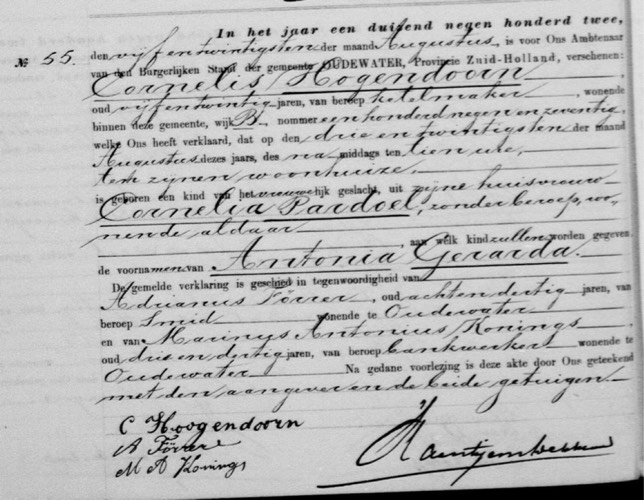 In het jaar een duisend negen honderd twee,
№ 55.
den vijfentwintigsten der maand Augustus, is voor Ons Ambtenaar
van den Burgerlijken Stand der gemeente OUDEWATER, Provincie Zuid-Holland, verschenen:
Cornelis Hogendoorn
oud vijfentwintig jaren, van beroep ketelmaker, wonende
binnen deze gemeente, wijk B, nommer eenhonderd negen en zeventig,
welke Ons heeft verklaard, dat op den drie en twintigsten der maand
Augustus dezes jaars, des na middags ten tien ure,
ten zijnen woonhuize,
is geboren een kind van het vrouwelijk geslacht, uit zijne huisvrouw
Cornelia Pardoel, zonder beroep, wo-
nende aldaar
, aan welk kind zullen worden gegeven
de voornamen van Antonia Gerarda.
De gemelde verklaring is geschied in tegenwoordigheid van
Adrianus Förrer, oud achtendertig jaren, van
beroep Smid wonende te Oudewater
en van Marinus Antonius Konings
oud drie en dertig jaren, van beroep bankwerker wonende te
Oudewater Na gedane voorlezing is deze akte door Ons geteekend
met den aangever en de beide getuigen.
C Hoogendoorn
A Förrer
M A Konings